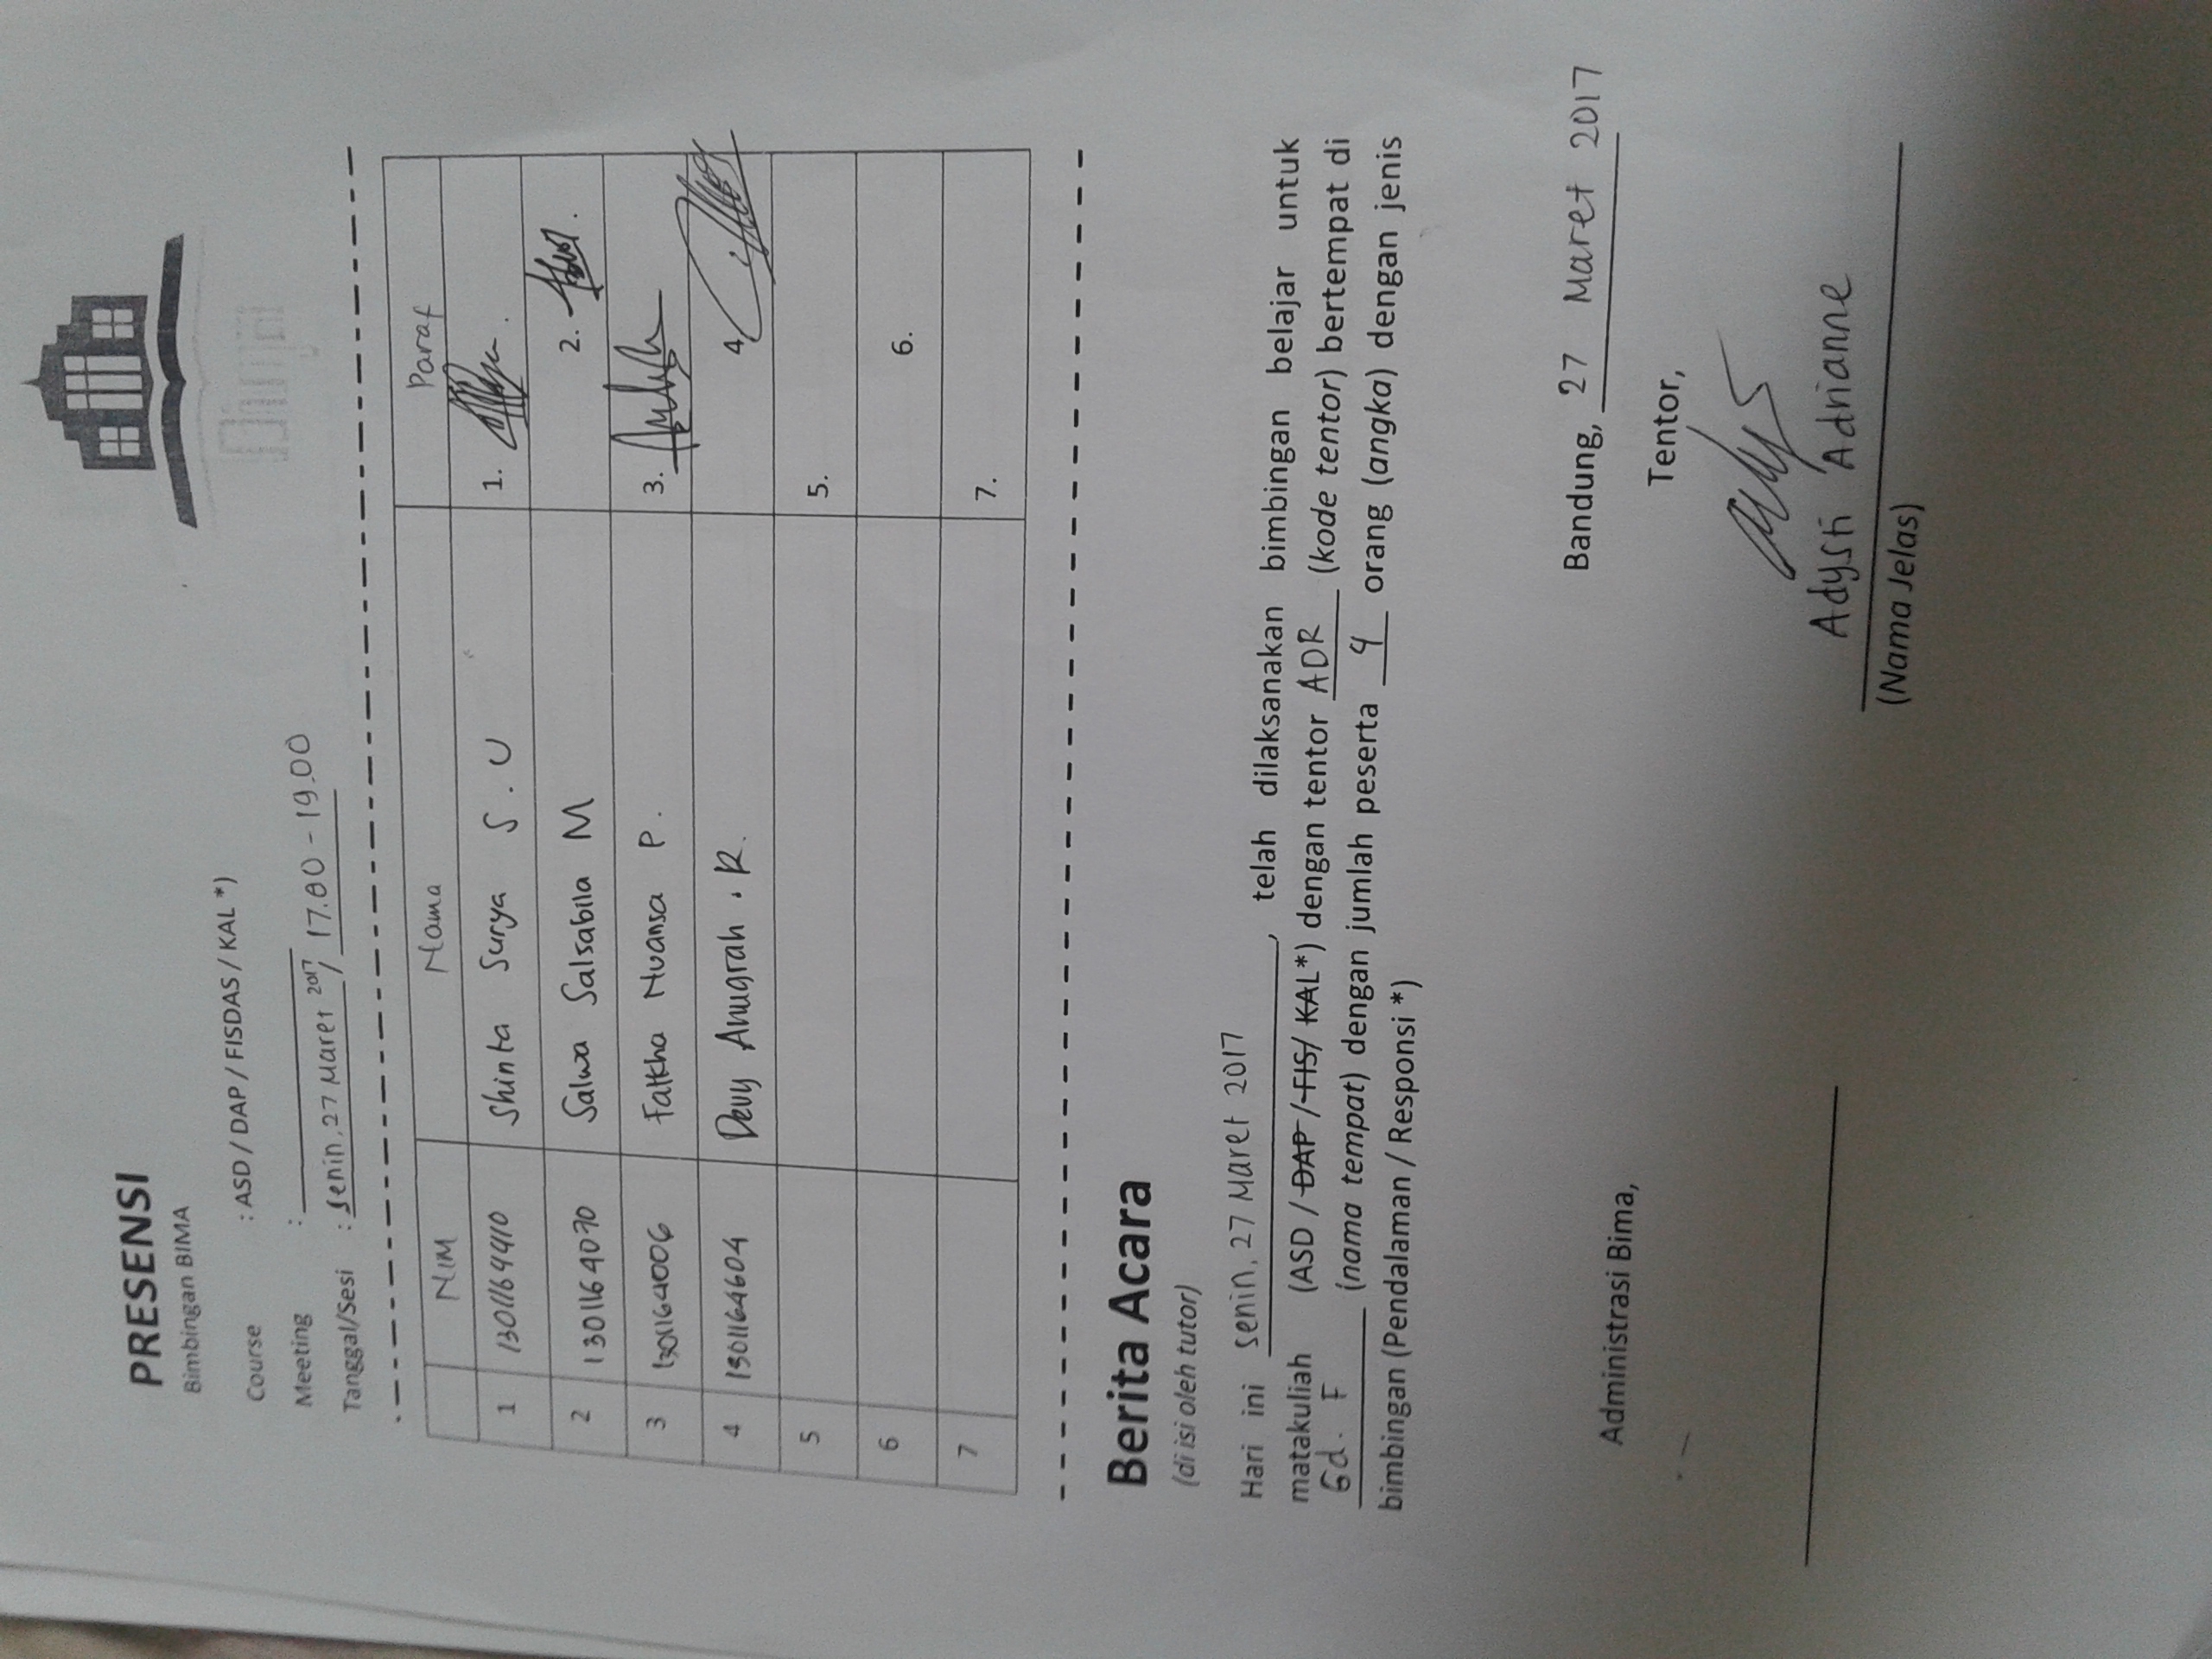 PRESENSI
Bimbingan BIMA
Course : ASD / DAP / FISDAS / KAL *)
Meeting :
Tanggal/Sesi : Senin, 27 Maret 2017 / 17.00 - 19.00
NIM Nama Paraf
1 1301164410 Shinta Surya S. U 1.
2 1301164070 Salwa Salsabila M 2.
3 1301164006 Fatkha Nuansa P. 3.
4 1301164604 Devy Anugrah . R. 4
5 5.
6 6.
7 7.
Berita Acara
(di isi oleh tutor)
Hari ini senin, 27 Maret 2017, telah dilaksanakan bimbingan belajar untuk
matakuliah (ASD / DAP / FIS/ KAL*) dengan tentor ADR (kode tentor) bertempat di
Gd. F (nama tempat) dengan jumlah peserta 4 orang (angka) dengan jenis
bimbingan (Pendalaman / Responsi *)
Bandung, 27 Maret 2017
Administrasi Bima,
Tentor,
Adysti Adrianne
(Nama Jelas)